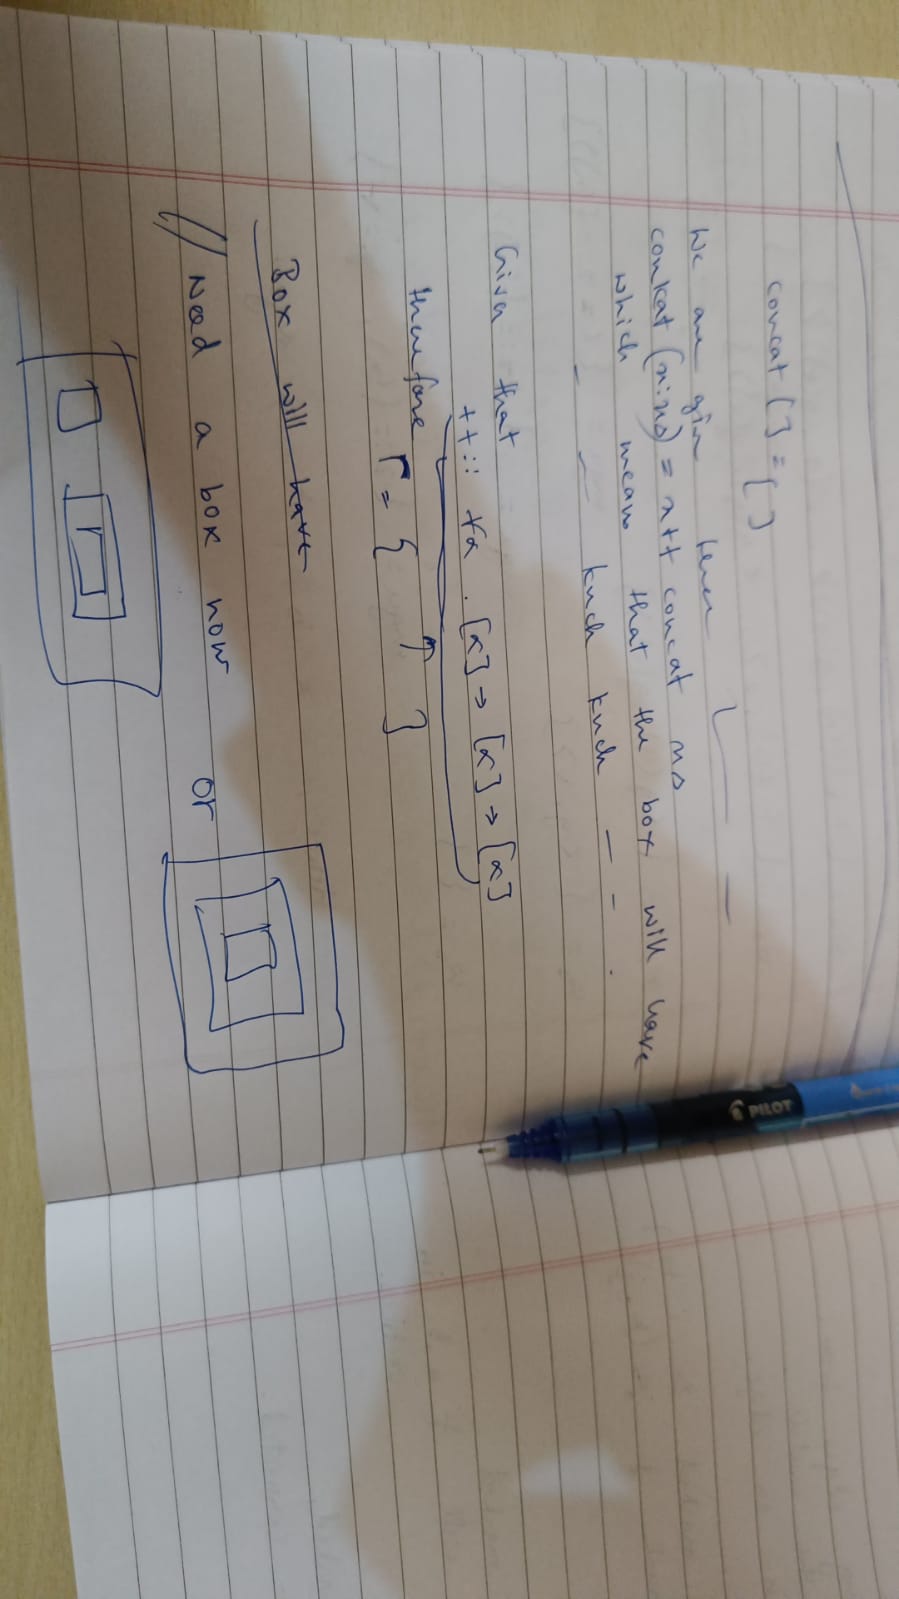 concat [] = []
We are given
concat (x:xs) = x++ concat xs
which means that the box will have
kuch kuch — — .
Given that
++ :: ∀α . [α] → [α] → [α]
therefore
Γ = { ↑ }
Box will have
// Need a box now or
PILOT